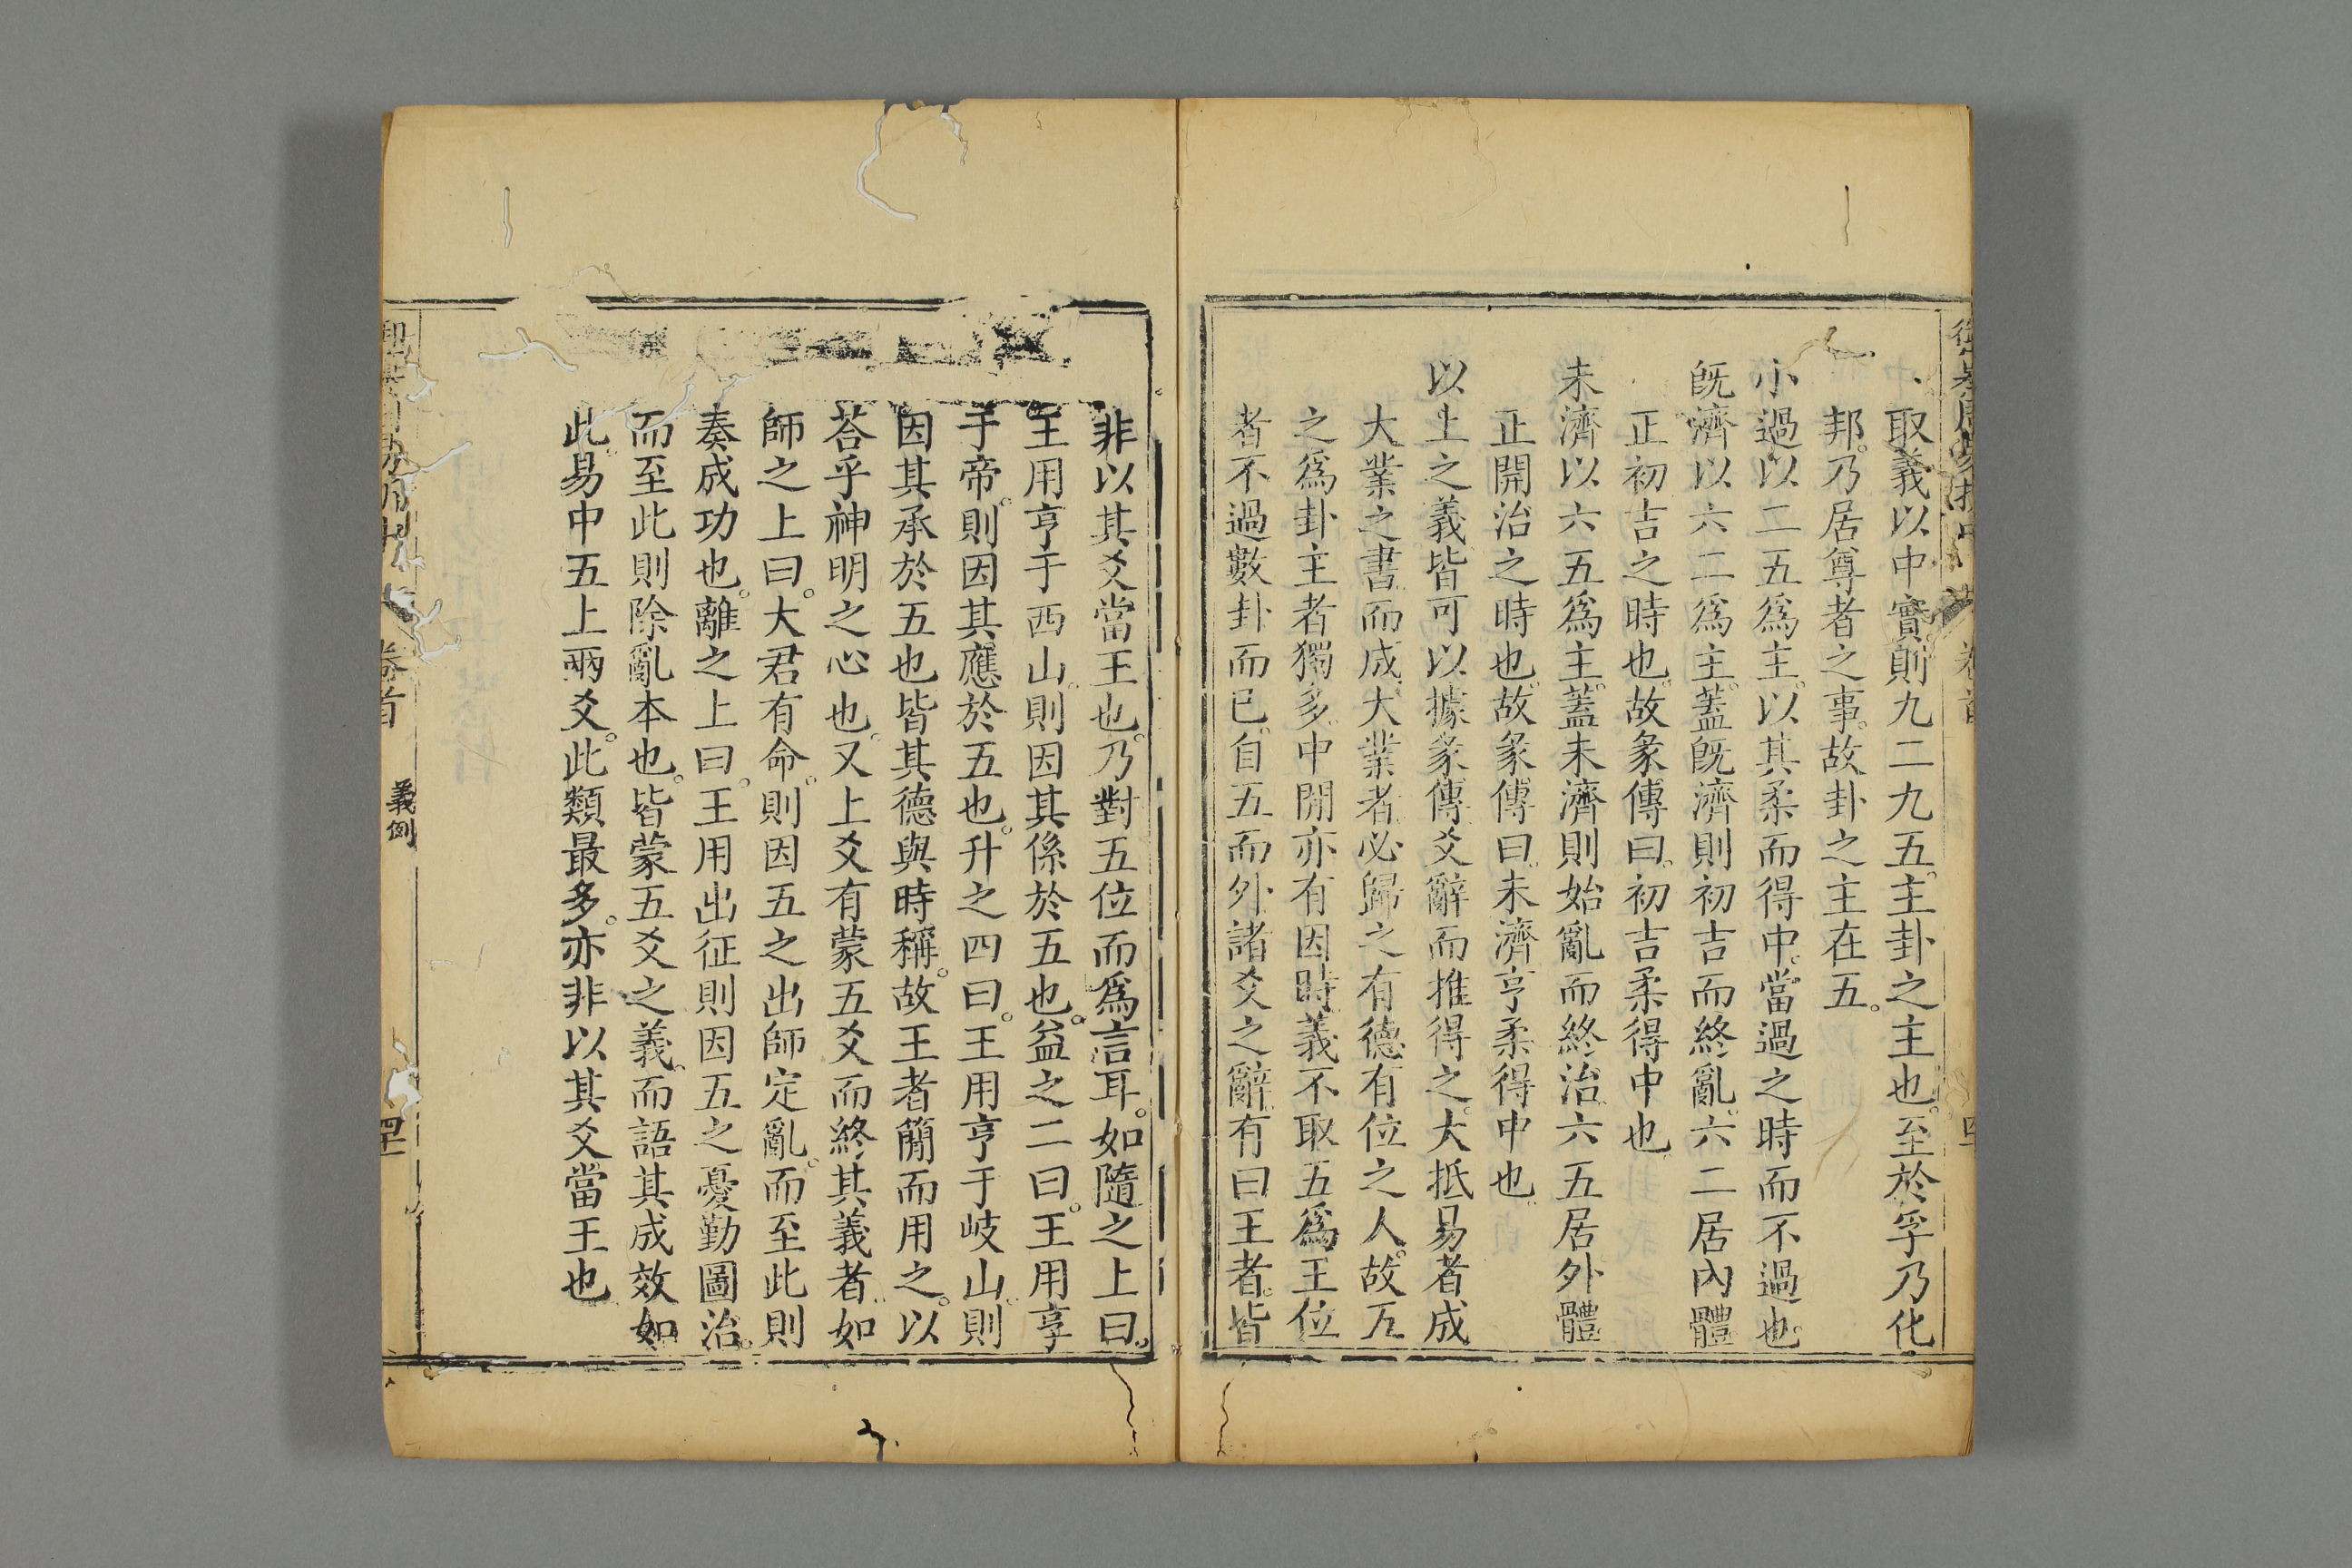 取義以中實則九二九五主卦之主也。至於孚乃化
邦。乃居尊者之事。故卦之主在五。
小過以二五爲主。以其柔而得中。當過之時而不過也。
旣濟以六二爲主。蓋旣濟則初吉而終亂。六二居內體
正初吉之時也。故彖傳曰。初吉柔得中也
未濟以六五爲主。蓋未濟則始亂而終治。六五居外體
正開治之時也。故彖傳曰。未濟亨柔得中也。
以上之義皆可以據彖傳爻辭而推得之。大抵易者成
大業之書而成大業者必歸之有德有位之人。故五
之爲卦主者獨多。中閒亦有因時義不取五爲王位
者不過數卦而已。自五而外諸爻之辭。有曰王者。皆
非以其爻當王也。乃對五位而爲言耳。如隨之上曰。
王用亨于西山。則因其係於五也。益之二曰。王用享
于帝。則因其應於五也。升之四曰。王用亨于岐山。則
因其承於五也皆其德與時稱。故王者簡而用之。以
荅乎神明之心也。又上爻有蒙五爻而終其義者。如
師之上曰。大君有命。則因五之出師定亂。而至此則
奏成功也。離之上曰。王用出征則因五之憂勤圖治。
而至此則除亂本也。皆蒙五爻之義。而語其成效如
此。易中五上兩爻。此類最多。亦非以其爻當王也
卷首 義例